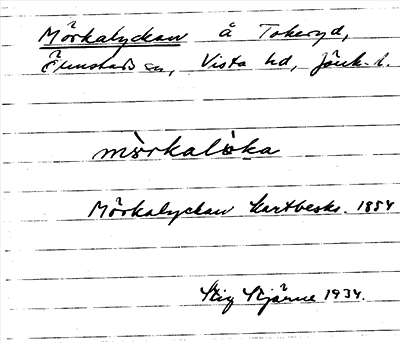 Mörkalyckan å Tokeryd,
Ölmstads sn, Vista hd, Jönk. l.
mörkalöka
Mörkalyckan kartbeskr. 1854
Stig Stjärne 1934.